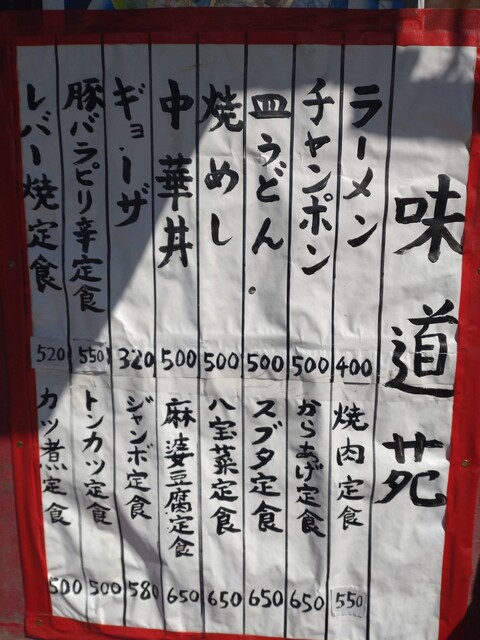 味道苑
ラーメン 400
チャンポン 500
皿うどん 500
焼めし 500
中華丼 500
ギョーザ 320
豚バラピリ辛定食 550
レバー焼定食 520
焼肉定食 550
からあげ定食 650
スブタ定食 650
八宝菜定食 650
麻婆豆腐定食 650
ジャンボ定食 580
トンカツ定食 500
カツ煮定食 500